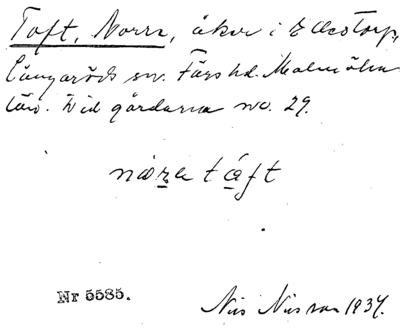 Toft, Norra, åker i Ellestorp,
Långaröds sn. Färs hd. Malmöhus
län. Vid gårdarna no. 29.
nǫrra tåft
Nr 5585.
Nils Nilsson 1934.